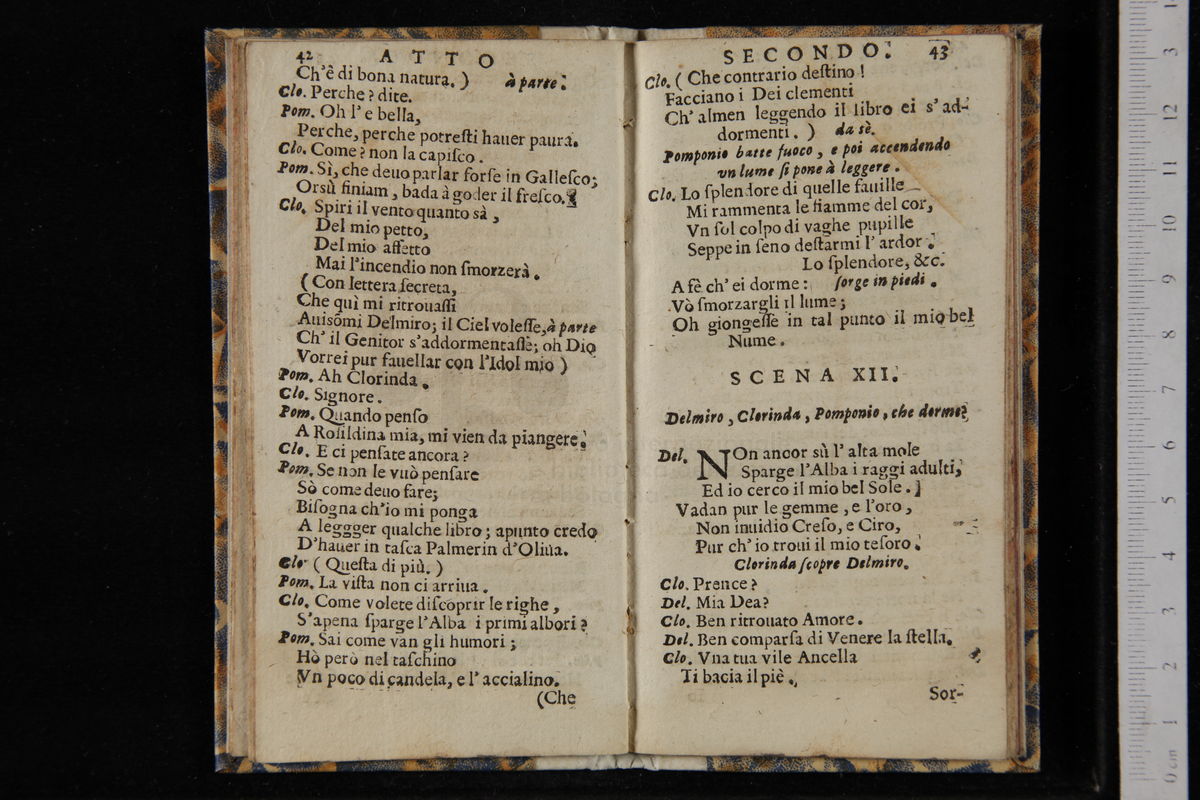 42 ATTO
Ch'è di bona natura. ) à parte.
Clo. Perche? dite.
Pom. Oh l'e bella,
Perche, perche potresti hauer paura.
Clo. Come? non la capisco.
Pom. Sì, che deuo parlar forse in Gallesco;
Orsù finiam, bada à goder il fresco.
Clo. Spiri il vento quanto sà,
Del mio petto,
Del mio affetto
Mai l'incendio non smorzerà.
(Con lettera secreta,
Che quì mi ritrouassi
Auisòmi Delmiro; il Ciel volesse, à parte
Ch'il Genitor s'addormentasse; oh Dio
Vorrei pur fauellar con l'Idol mio )
Pom. Ah Clorinda.
Clo. Signore.
Pom. Quando penso
A Rosildina mia, mi vien da piangere.
Clo. E ci pensate ancora?
Pom. Se non le vuò pensare
Sò come deuo fare;
Bisogna ch'io mi ponga
A leggger qualche libro; apunto credo
D'hauer in tasca Palmerin d'Oliua.
Clo. (Questa di più.)
Pom. La vista non ci arriua.
Clo. Come volete discoprir le righe,
S'apena sparge l'Alba i primi albori?
Pom. Sai come van gli humori;
Hò però nel taschino
Vn poco di candela, e l'accialino.
(Che
SECONDO. 43
Clo. (Che contrario destino!
Facciano i Dei clementi
Ch'almen leggendo il libro ei s'ad-
dormenti. ) da sè.
Pomponio batte fuoco, e poi accendendo
vn lume si pone à leggere.
Clo. Lo splendore di quelle fauille
Mi rammenta le fiamme del cor,
Vn sol colpo di vaghe pupille
Seppe in seno destarmi l'ardor.
Lo splendore, &c.
A fè ch'ei dorme: sorge in piedi.
Vò smorzargli il lume;
Oh giongesse in tal punto il mio bel
Nume.
SCENA XII.
Delmiro, Clorinda, Pomponio, che dorme.
Del. NOn ancor sù l'alta mole
Sparge l'Alba i raggi adulti,
Ed io cerco il mio bel Sole.
Vadan pur le gemme, e l'oro,
Non inuidio Creso, e Ciro,
Pur ch'io troui il mio tesoro.
Clorinda scopre Delmiro.
Clo. Prence?
Del. Mia Dea?
Clo. Ben ritrouato Amore.
Del. Ben comparsa di Venere la stella.
Clo. Vna tua vile Ancella
Ti bacia il piè.
Sor-